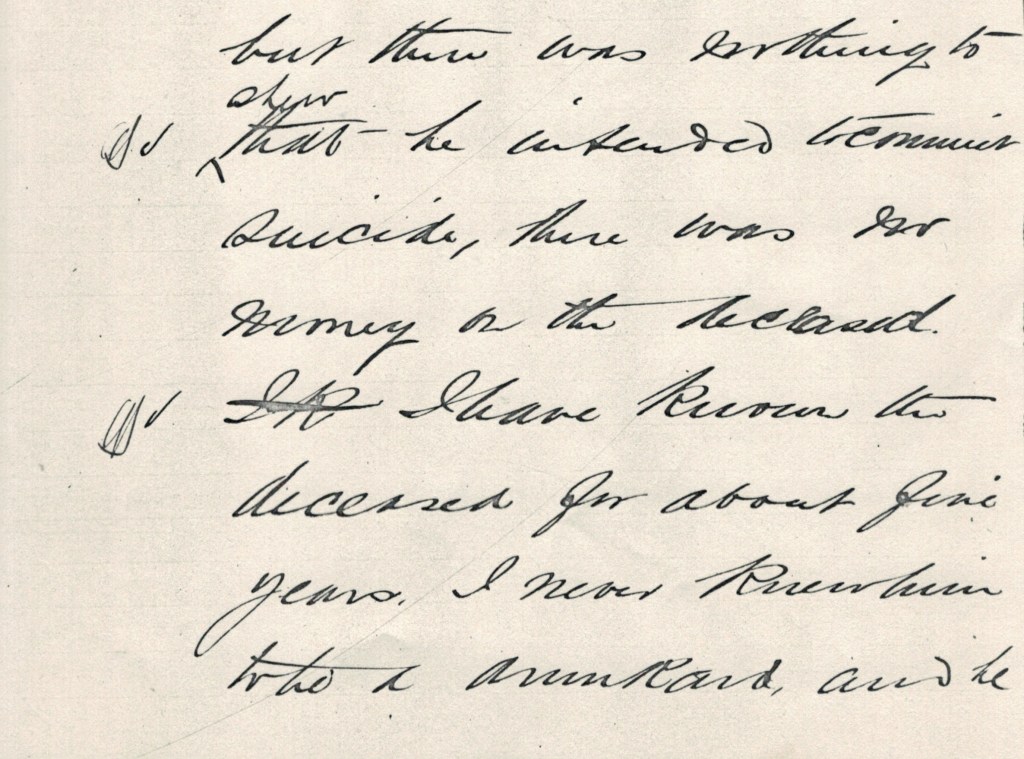 but there was nothing to
show
that he intended to commit
suicide, there was no
money on the deceased.
I have known the
deceased for about five
years. I never knew him
to be a drunkard, and he